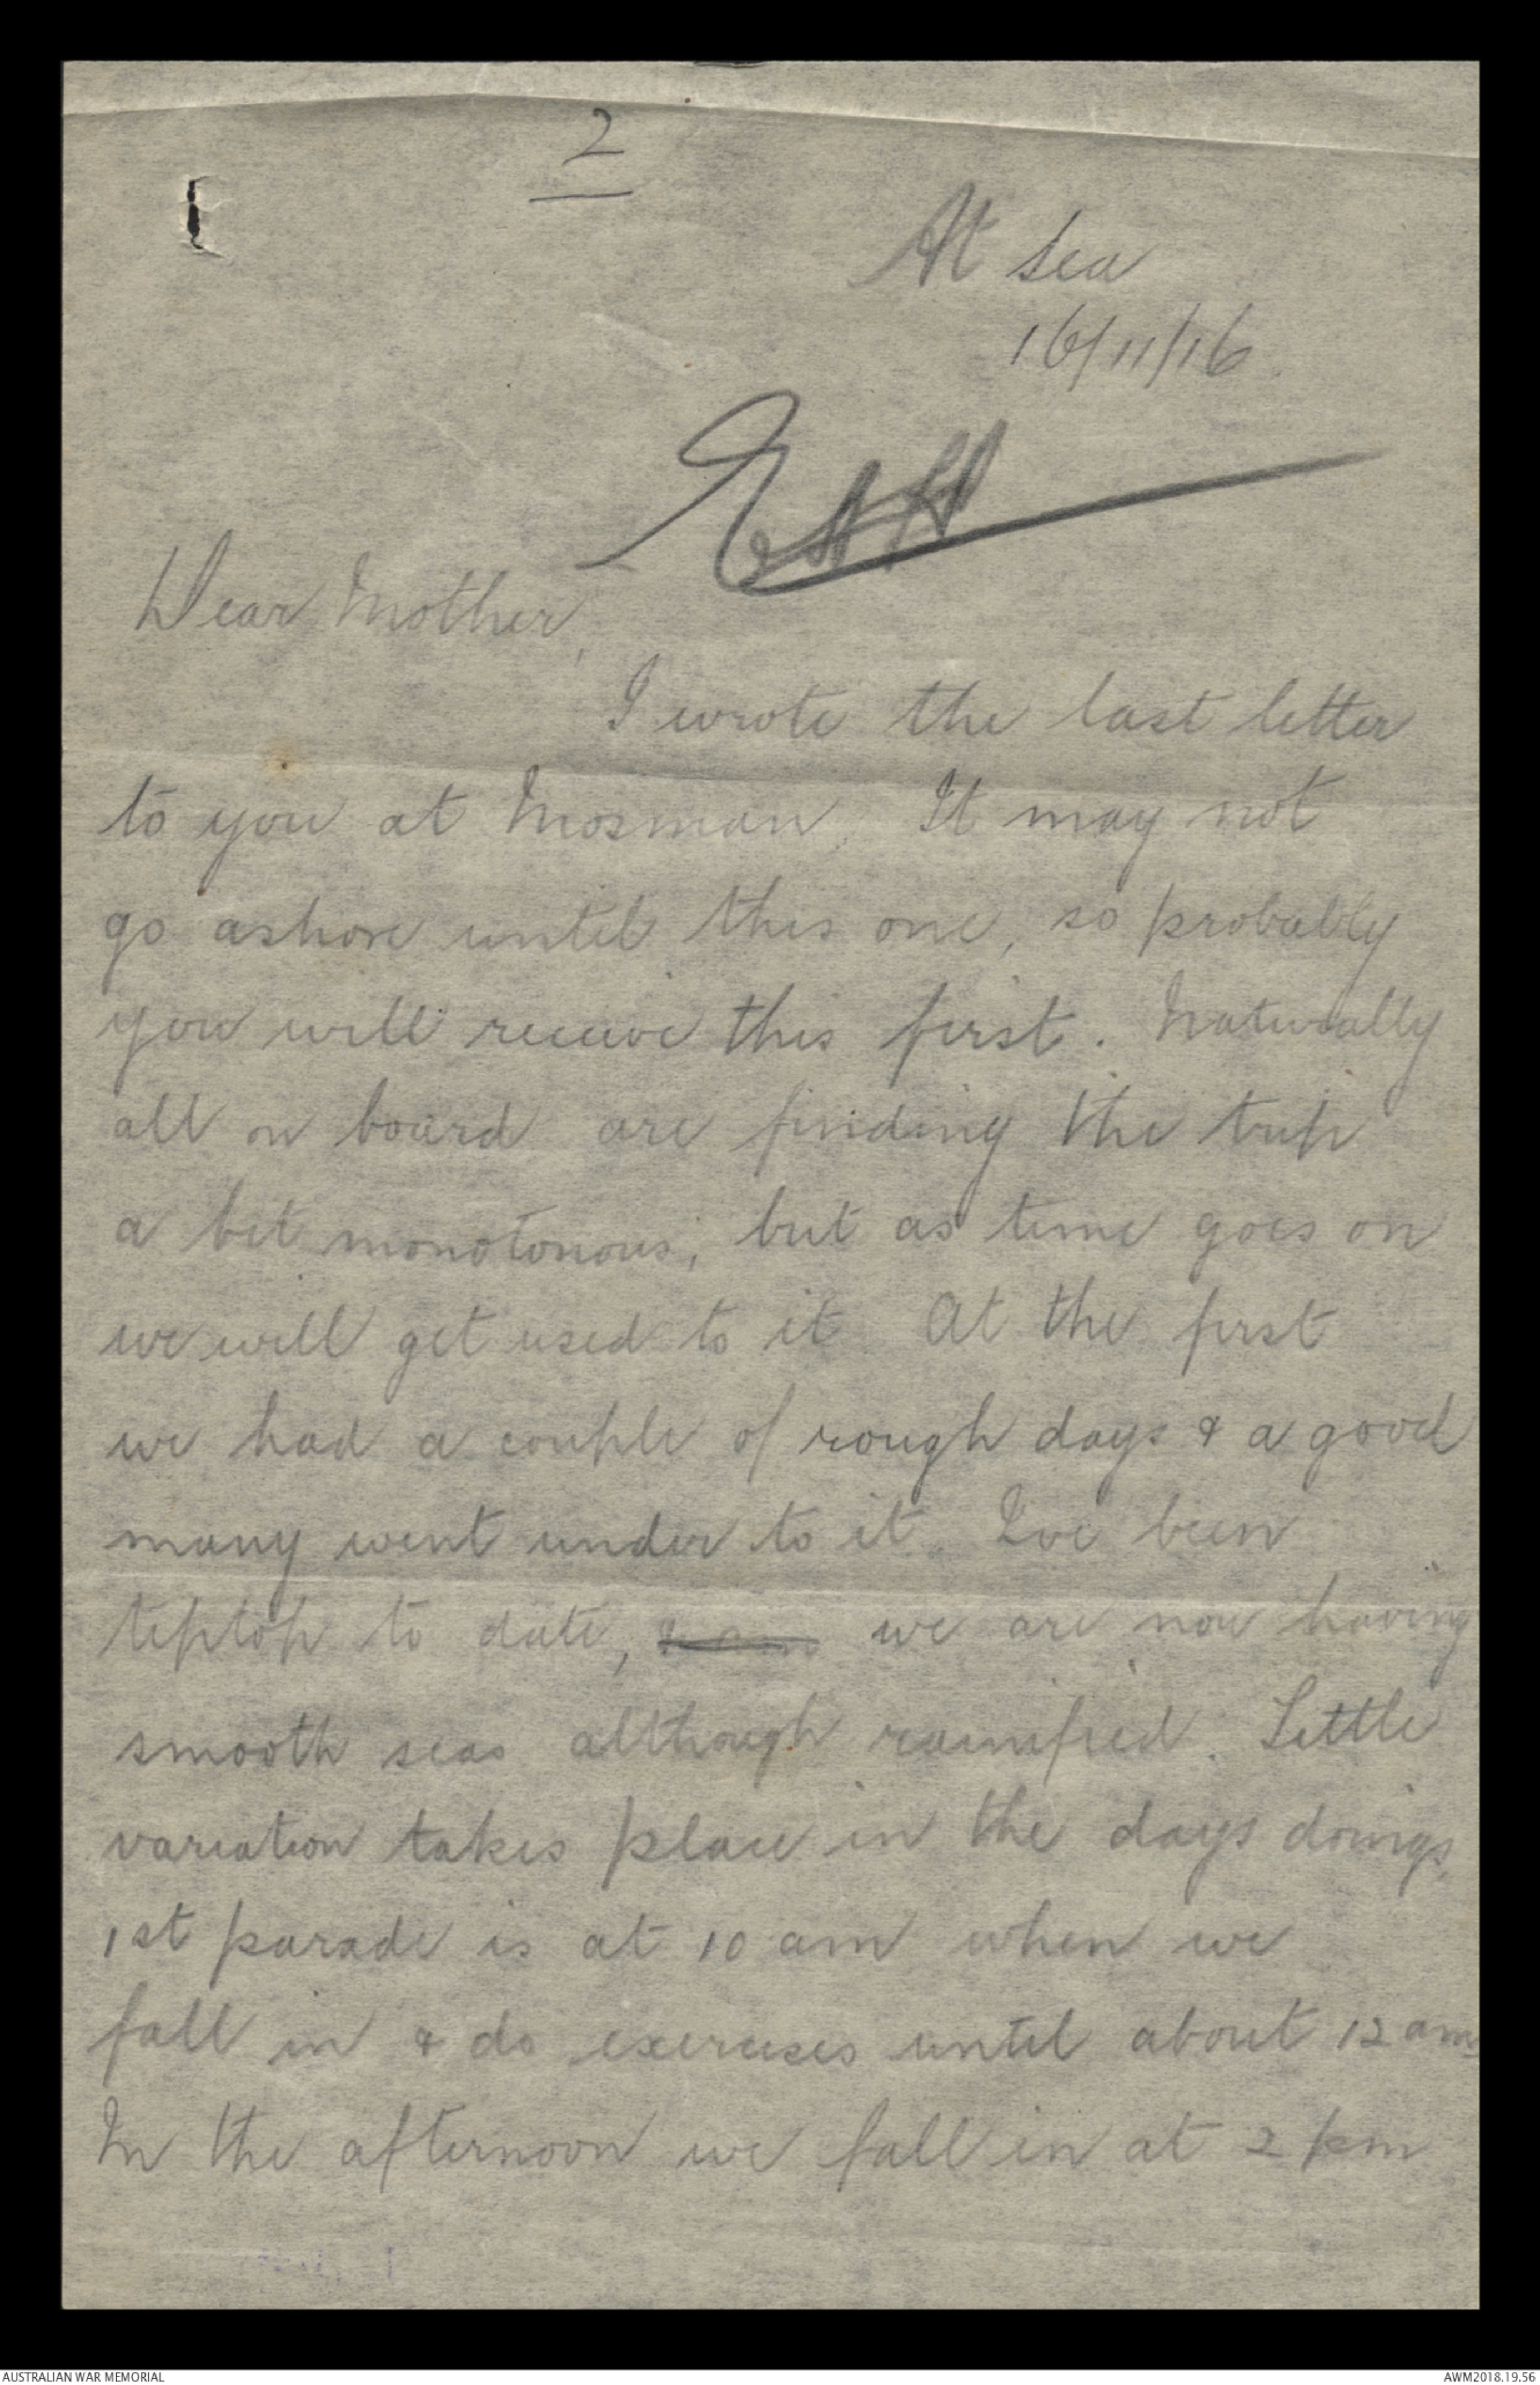 2
At sea
16/11/16
Dear Mother,
I wrote the last letter
to you at Mosman. It may not
go ashore until this one, so probably
you will receive this first. Naturally
all on board are finding the trip
a bit monotonous, but as time goes on
we will get used to it. At the first
we had a couple of rough days & a good
many went under to it. I've been
tiptop to date, we are now having
smooth seas although. Little
variation takes place in the days doings.
1st parade is at 10 am when we
fall in & do exercises until about 12 am
In the afternoon we fall in at 2 pm
AUSTRALIAN WAR MEMORIAL
AWM2018.19.56